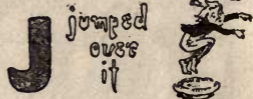 J
jumped
over
it